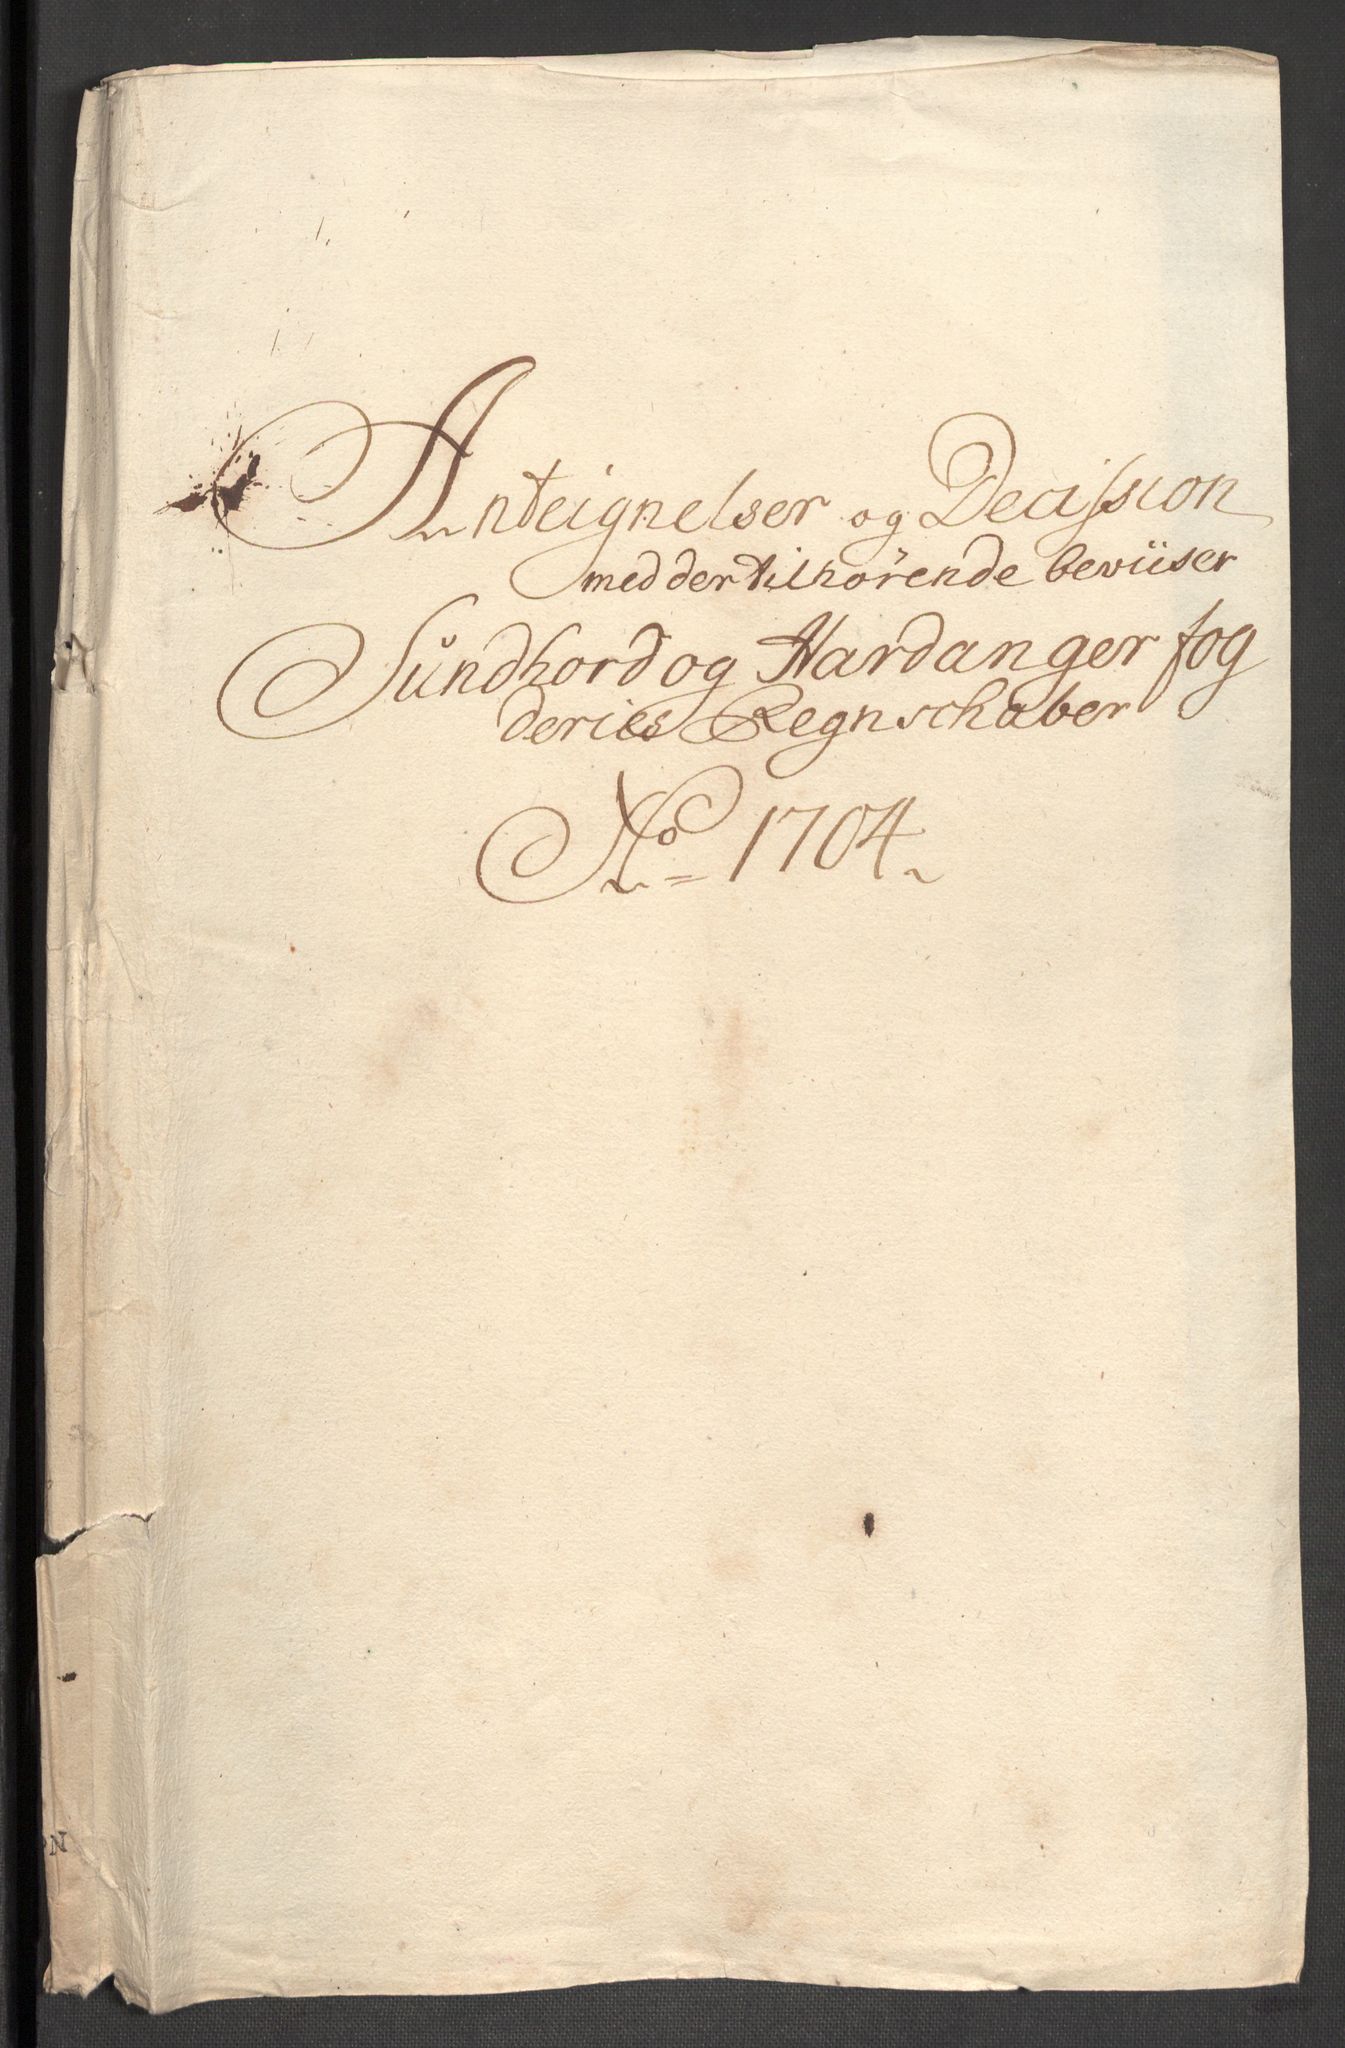 Anteignelser og Decission
med der tilhørende bewiiser
Sundhord og Hardanger fog
deries Regnschaber
No = 1704